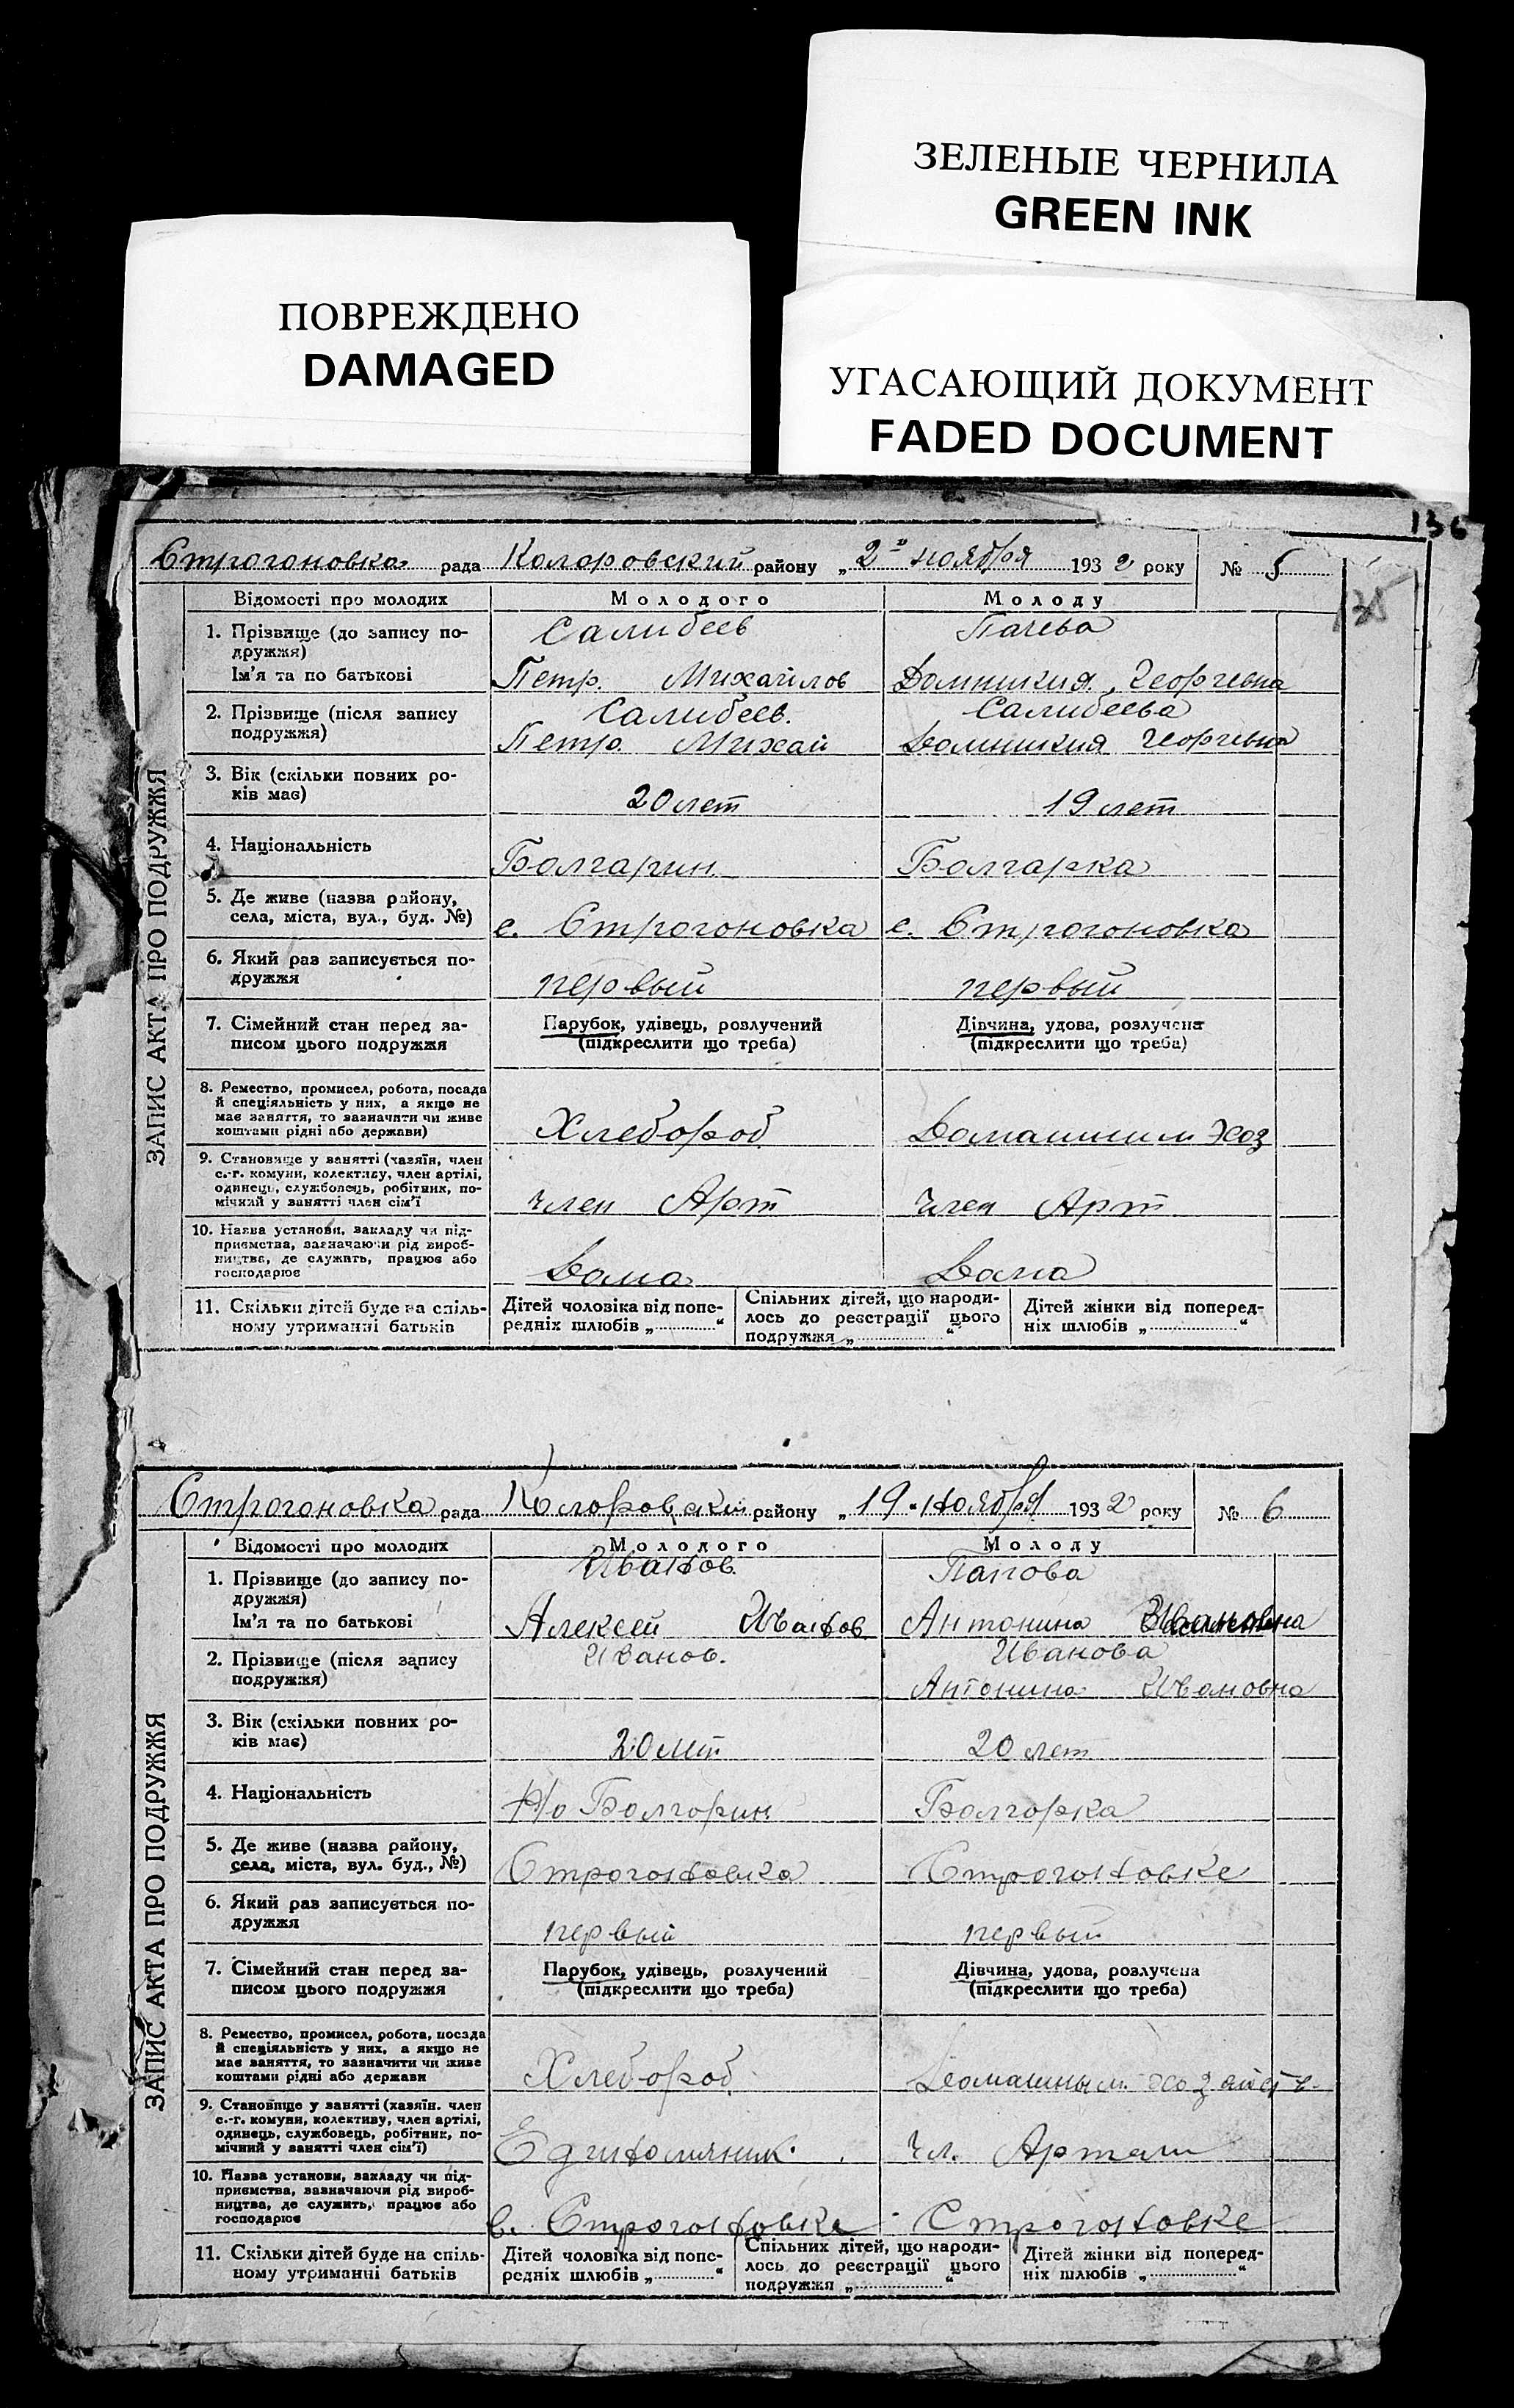 ЗЕЛЕНЫЕ ЧЕРНИЛА
GREEN INK
ПОВРЕЖДЕНО
DAMAGED
УГАСАЮЩИЙ ДОКУМЕНТ
FADED DOCUMENT
136
Строгоновка рада Коларовский району „2го ноября 1932 року № 5
135
ЗАПИС АКТА ПРО ПОДРУЖЖЯ
Відомості про молодих Молодого Молоду
1. Прізвище (до запису по- Салибеев Пачева
дружжя)
Ім'я та по батькові Петр. Михайлов Домникия. Георгевна
2. Прізвище (після запису Салибеев. Салибеева
подружжя) Петр. Михай Домникия Георгевна
3. Вік (скільки повних ро-
ків має) 20 лет 19 лет
4. Національність Болгарин. Болгарка
5. Де живе (назва району,
села, міста, вул., буд. №) с. Строгоновка с. Строгоновка
6. Який раз записується по-
дружжя первый первый
7. Сімейний стан перед за- Парубок, удівець, розлучений Дівчина, удова, розлучена
писом цього подружжя (підкреслити що треба) (підкреслити що треба)
8. Ремество, промисел, робота, посада
й спеціяльність у них, а якщо не
має заняття, то зазначити чи живе
коштами рідні або держави) Хлебороб Домашним хоз
9. Становище у занятті (хазяїн, член
с.-г. комуни, колективу, член артілі,
одинець, службовець, робітник, по-
мічний у занятті член сім'ї член Арт член Арт
10. Назва установи, закладу чи під-
приємства, зазначаючи рід вироб-
ництва, де служить, працює або
господарює Дома Дома
11. Скільки дітей буде на спіль- Дітей чоловіка від попе- Спільних дітей, що народи- Дітей жінки від поперед-
ному утриманні батьків редніх шлюбів „ “ лось до реєстрації цього ніх шлюбів „ “
подружжя „ “
Строгоновка рада Коларовский району „19 ноября 1932 року № 6
ЗАПИС АКТА ПРО ПОДРУЖЖЯ
Відомості про молодих Молодого Молоду
1. Прізвище (до запису по- Иванов. Папова
дружжя)
Ім'я та по батькові Алексей Иванов Антонина Ивановна
2. Прізвище (після запису Иванов. Иванова
подружжя) Антонина Ивановна
3. Вік (скільки повних ро-
ків має) 20 лет 20 лет
4. Національність Болгорин Болгорка
5. Де живе (назва району,
села, міста, вул. буд., №) Строгоновка Строгоновке
6. Який раз записується по-
дружжя первый первый
7. Сімейний стан перед за- Парубок, удівець, розлучений Дівчина, удова, розлучена
писом цього подружжя (підкреслити що треба) (підкреслити що треба)
8. Ремество, промисел, робота, посада
й спеціяльність у них, а якщо не
має заняття, то зазначити чи живе
коштами рідні або держави Хлебороб Домашным.
9. Становище у занятті (хазяїн. член
с.-г. комуни, колективу, член артілі,
одинець, службовець, робітник, по-
мічний у занятті член сім'ї) Единоличник. чл. Артели
10. Назва установи, закладу чи під-
приємства, зазначаючи рід вироб-
ництва, де служить, працює або
господарює в. Строгоновке Строгоновке
11. Скільки дітей буде на спіль- Дітей чоловіка від попе- Спільних дітей, що народи- Дітей жінки від поперед-
ному утриманні батьків редніх шлюбів „ “ лось до реєстрації цього ніх шлюбів „ “
подружжя „ “